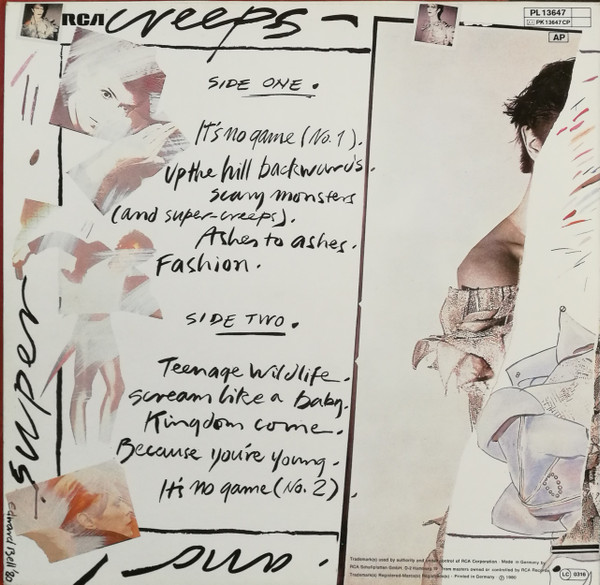 RCA
creeps
PL 13647
PK 13647 CP
AP
SIDE ONE.
It's no game (No. 1).
up the hill backwards.
scary monsters
(and super-creeps).
Ashes to ashes.
Fashion.
SIDE TWO.
Teenage Wildlife.
scream like a baby.
Kingdom come.
Because you're young.
It's no game (No. 2).
super
and
Edward Bell '80
Trademark(s) used by authority and control of RCA Corporation · Made in Germany by
RCA Schallplatten GmbH, from masters owned or controlled by RCA Records
Trademark(s) Registered · Printed in Germany · Ⓟ 1980
LC 0316